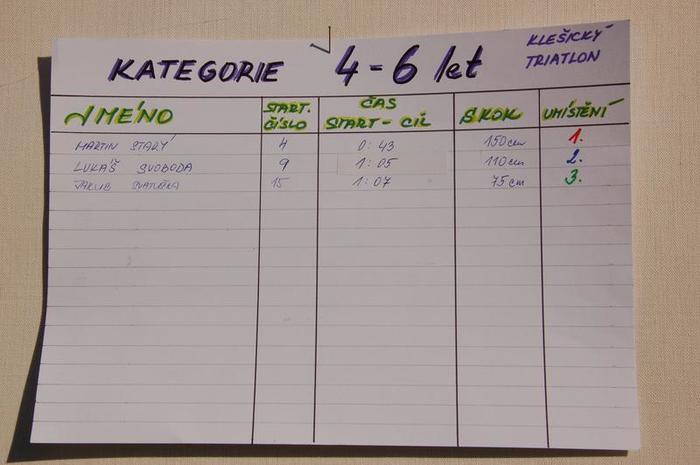 KATEGORIE 4-6 let
KLEŠICKÝ
TRIATLON
JMÉNO START. ČÍSLO ČAS START - CÍL SKOK UMÍSTĚNÍ
MARTIN STARÝ 4 0:43 150cm 1.
LUKÁŠ SVOBODA 9 1:05 110cm 2.
JAKUB 15 1:07 75cm 3.